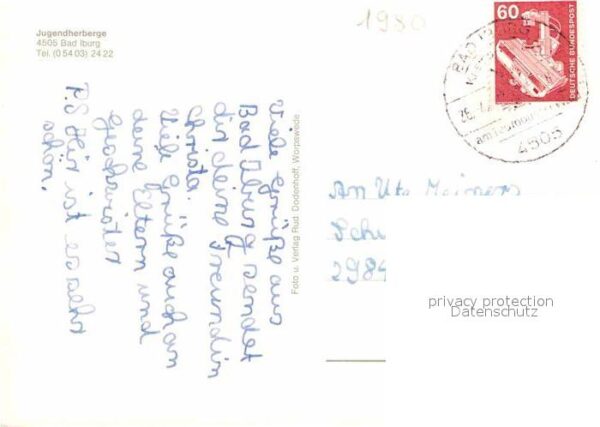 Jugendherberge
4505 Bad Iburg
Tel. (0 54 03) 24 22
1980
60
DEUTSCHE BUNDESPOST
BAD IBURG
am Teutoburger
4505
Viele Grüße aus
Bad Iburg sendet
dir deine Freundin
Christa.
Viele Grüße auch an
deine Eltern und
Geschwister
P.S Hir ist es sehr
schön.
Foto u. Verlag Rud. Dodenhoff, Worpswede
An Ute Meiners
Sche
2984
privacy protection
Datenschutz